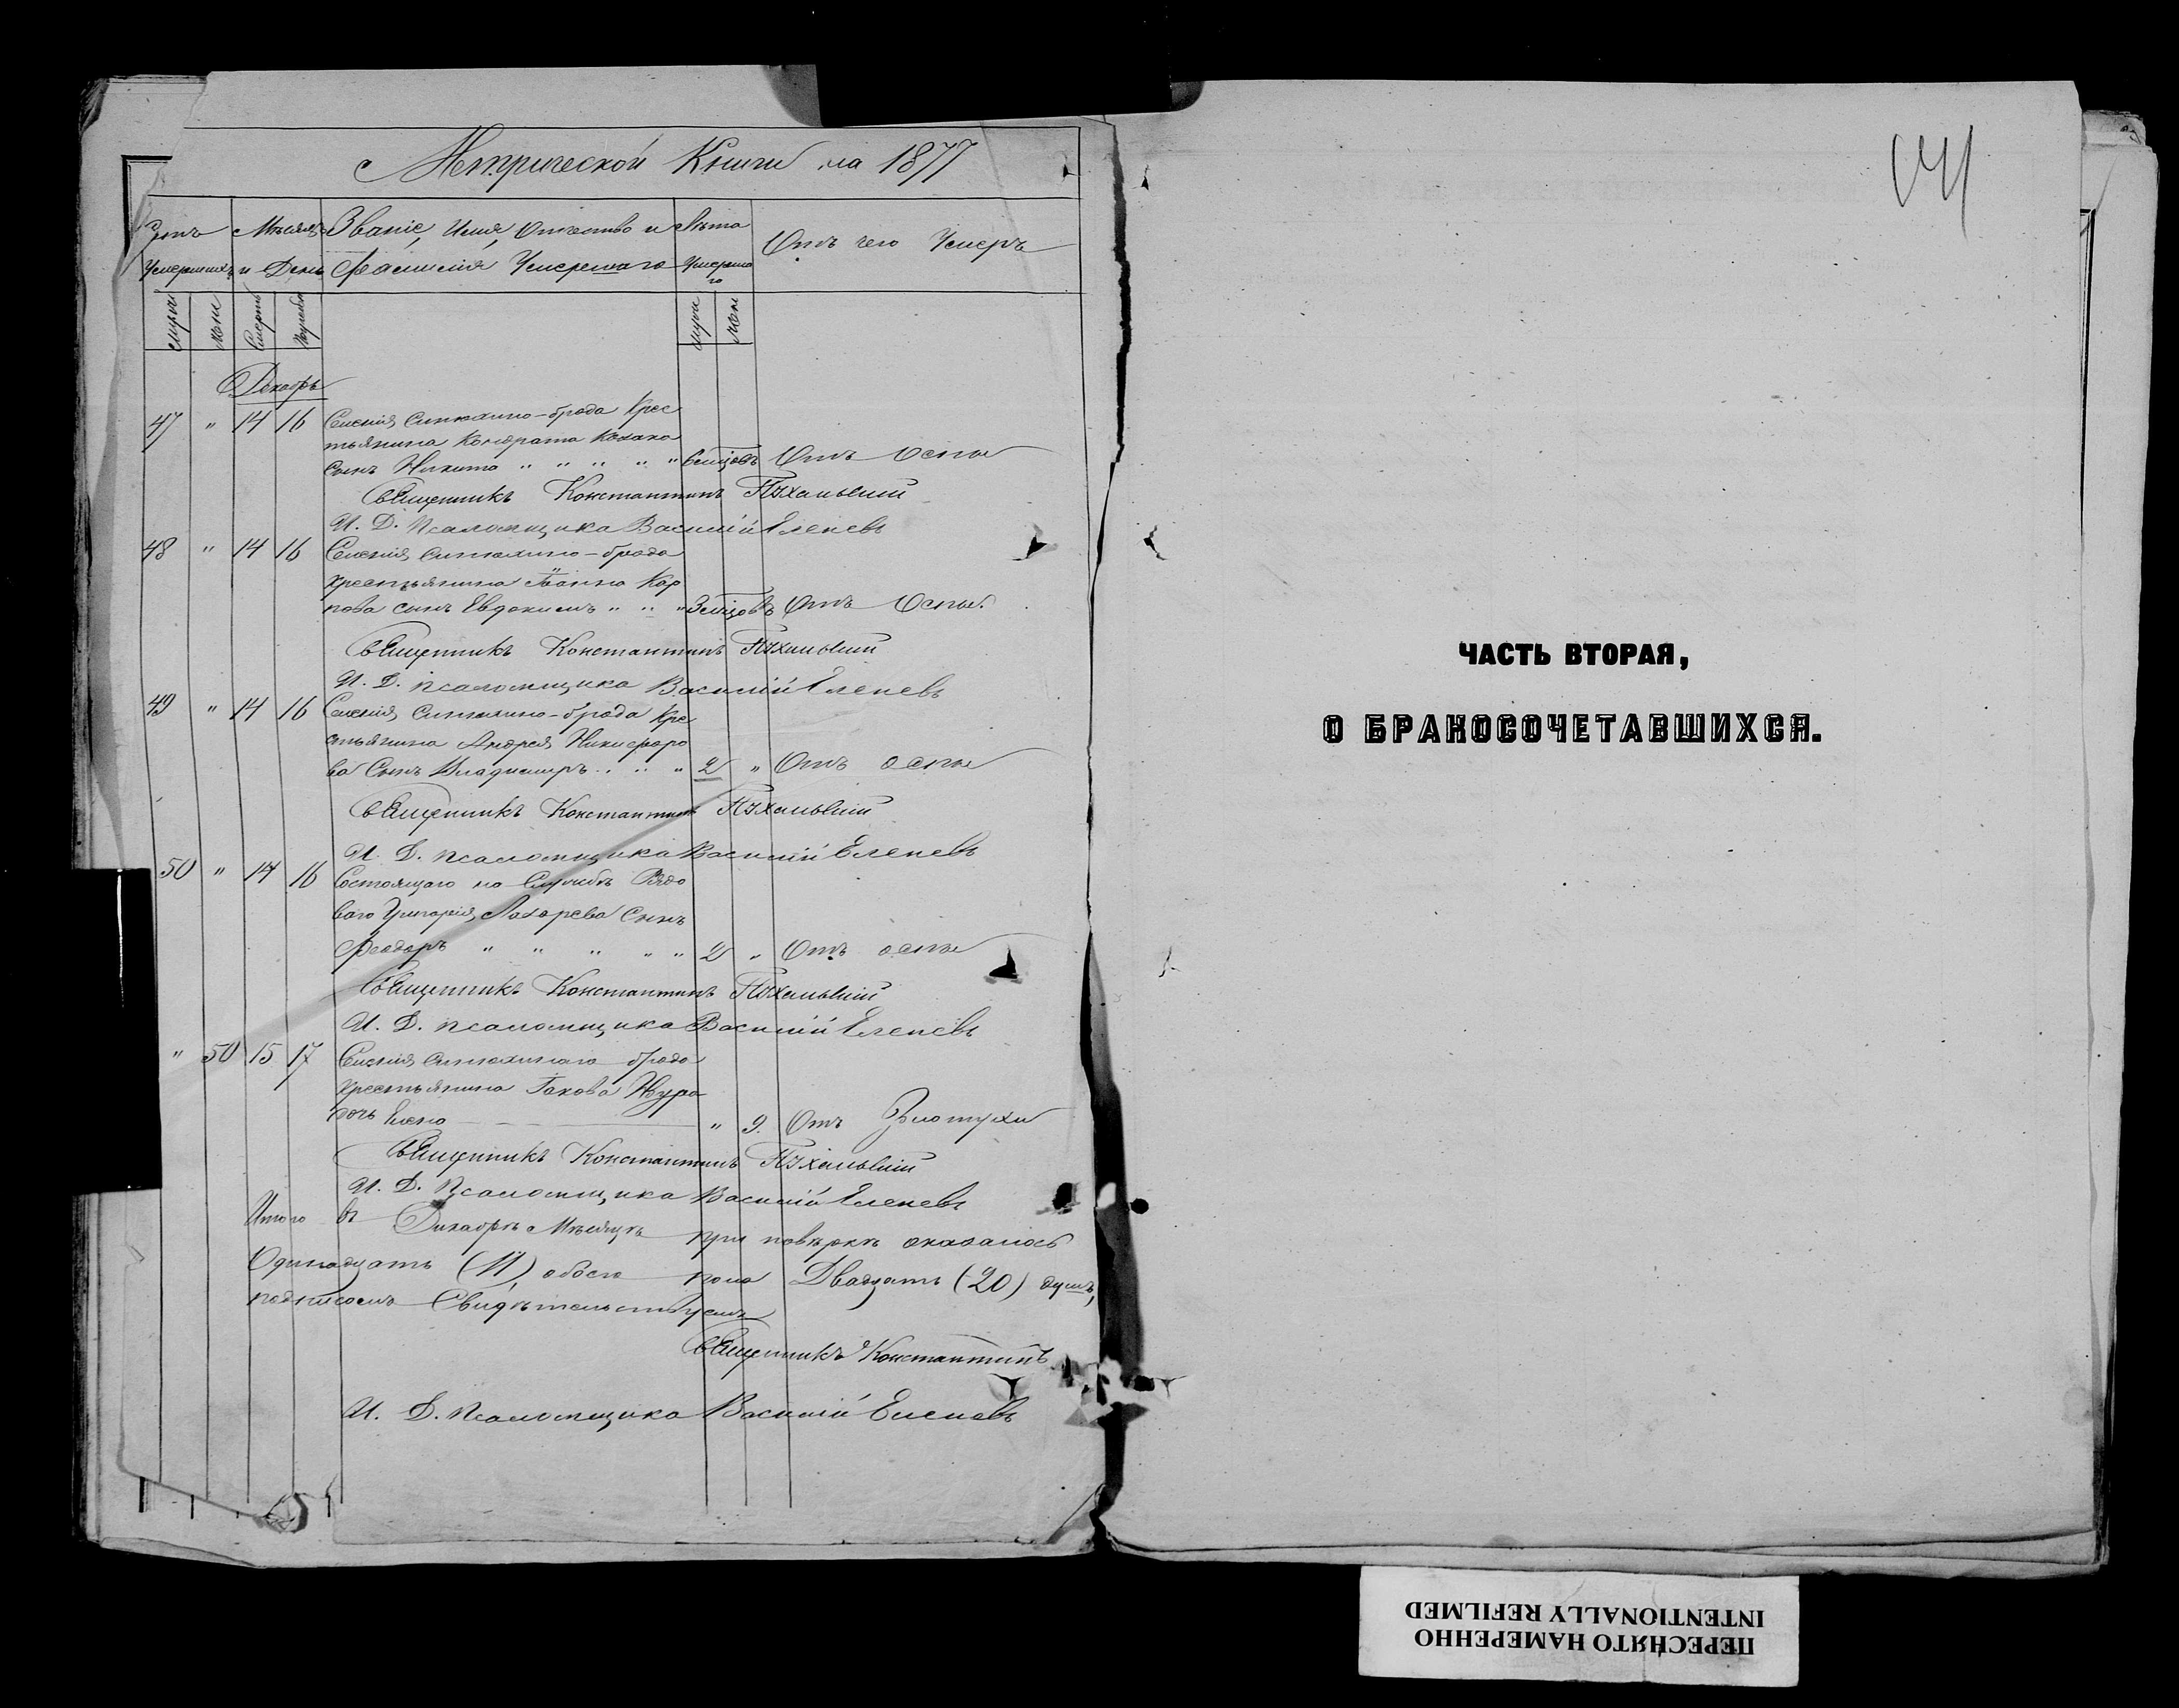 Метрической Книги на 1877
Счетъ Мѣсяцъ Званіе, Имя, Отчество и Лѣта Отъ чего Умеръ
Умершихъ и День Фамилія Умершаго Умершаго
муж жен Смерть Погребе муж жен
Декабрь
47 " 14 16 Селенія Синюхино-брода Крес
тьянина Кондрата Козака
сынъ Никита " " " " " 6 мѣсяцовъ Отъ Оспы
Священникъ Константинъ
И. Д. Псаломщика Василій Еленевъ
48 " 14 16 Селенія Синюхино-брода
крестьянина Іоанна Кар
пова сынъ Евдокимъ " " " 3 мѣсяцовъ Отъ Оспы.
Священникъ Константинъ
И. Д. псаломщика Василій Еленевъ
49 " 14 16 Селенія Синюхино-брода Кре
стьянина Андрея Никифоро
ва Сынъ Владимиръ " " " 2 " Отъ оспы
Священникъ Константинъ
И. Д. псаломщика Василій Еленевъ
50 " 14 16 Состоящаго на Службѣ Рядо
ваго Григорія Лазарева Сынъ
Феодоръ " " " " " 2 " Отъ оспы
Священникъ Константинъ
И. Д. псаломщика Василій Еленевъ
" 50 15 17 Селенія Синюхинаго брода
крестьянина Іакова Журо
дочь Елена " 9. Отъ
Священникъ Константинъ
И. Д. Псаломщика Василій Еленевъ
Итого въ Декабрѣ Мѣсяцѣ при повѣркѣ оказалось
Одинадцать (11), обоего пола Двадцать (20) душъ,
подписомъ Свидѣтельствуемъ
Священникъ Константинъ
И. Д. Псаломщика Василій Еленевъ
ЧАСТЬ ВТОРАЯ,
О БРАКОСОЧЕТАВШИХСЯ.
ПЕРЕСНЯТО НАМЕРЕННО
INTENTIONALLY REFILMED